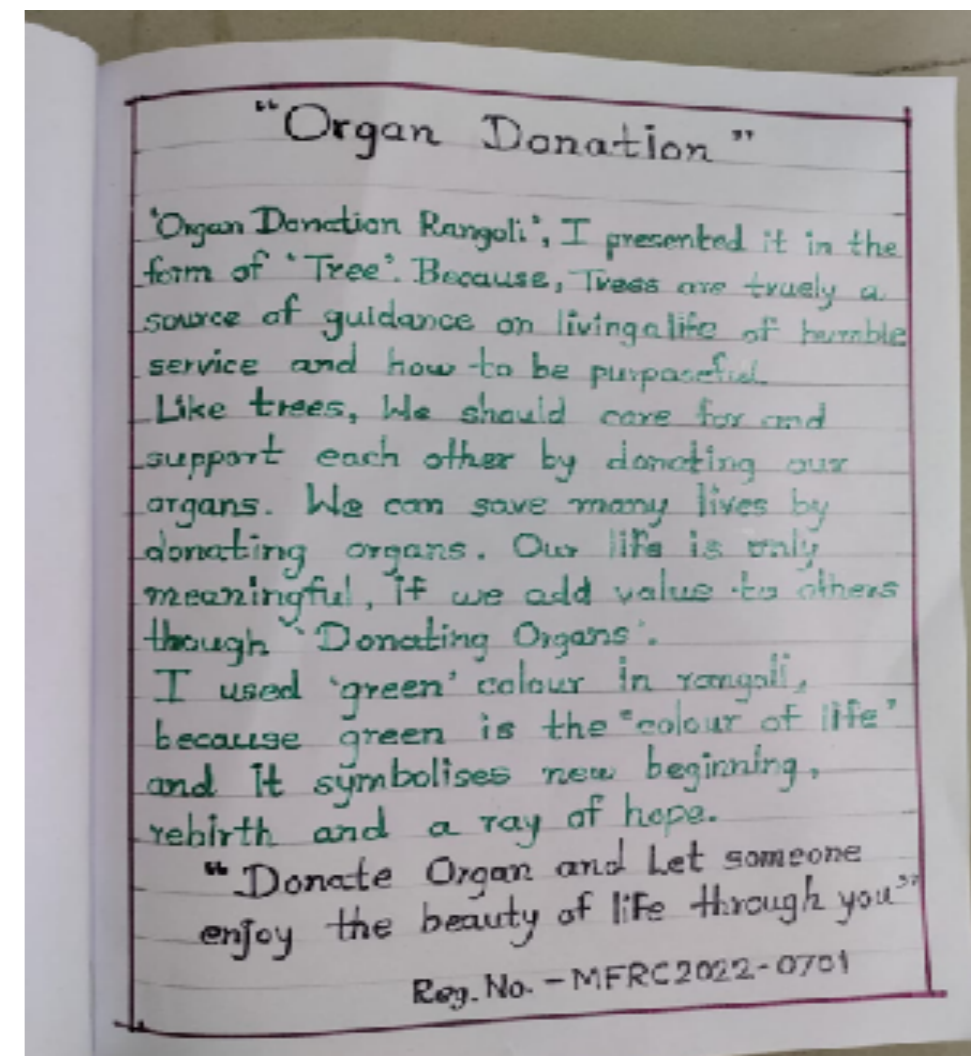 "Organ Donation"
'Organ Donation Rangoli', I presented it in the
form of 'Tree'. Because, Trees are truely a
source of guidance on living a life of humble
service and how to be purposeful.
Like trees, We should care for and
support each other by donating our
organs. We can save many lives by
donating organs. Our life is only
meaningful, if we add value to others
though 'Donating Organs'.
I used 'green' colour in rangoli,
because green is the "colour of life"
and it symbolises new beginning,
rebirth and a ray of hope.
"Donate Organ and Let someone
enjoy the beauty of life through you"
Reg. No. - MFRC2022-0701